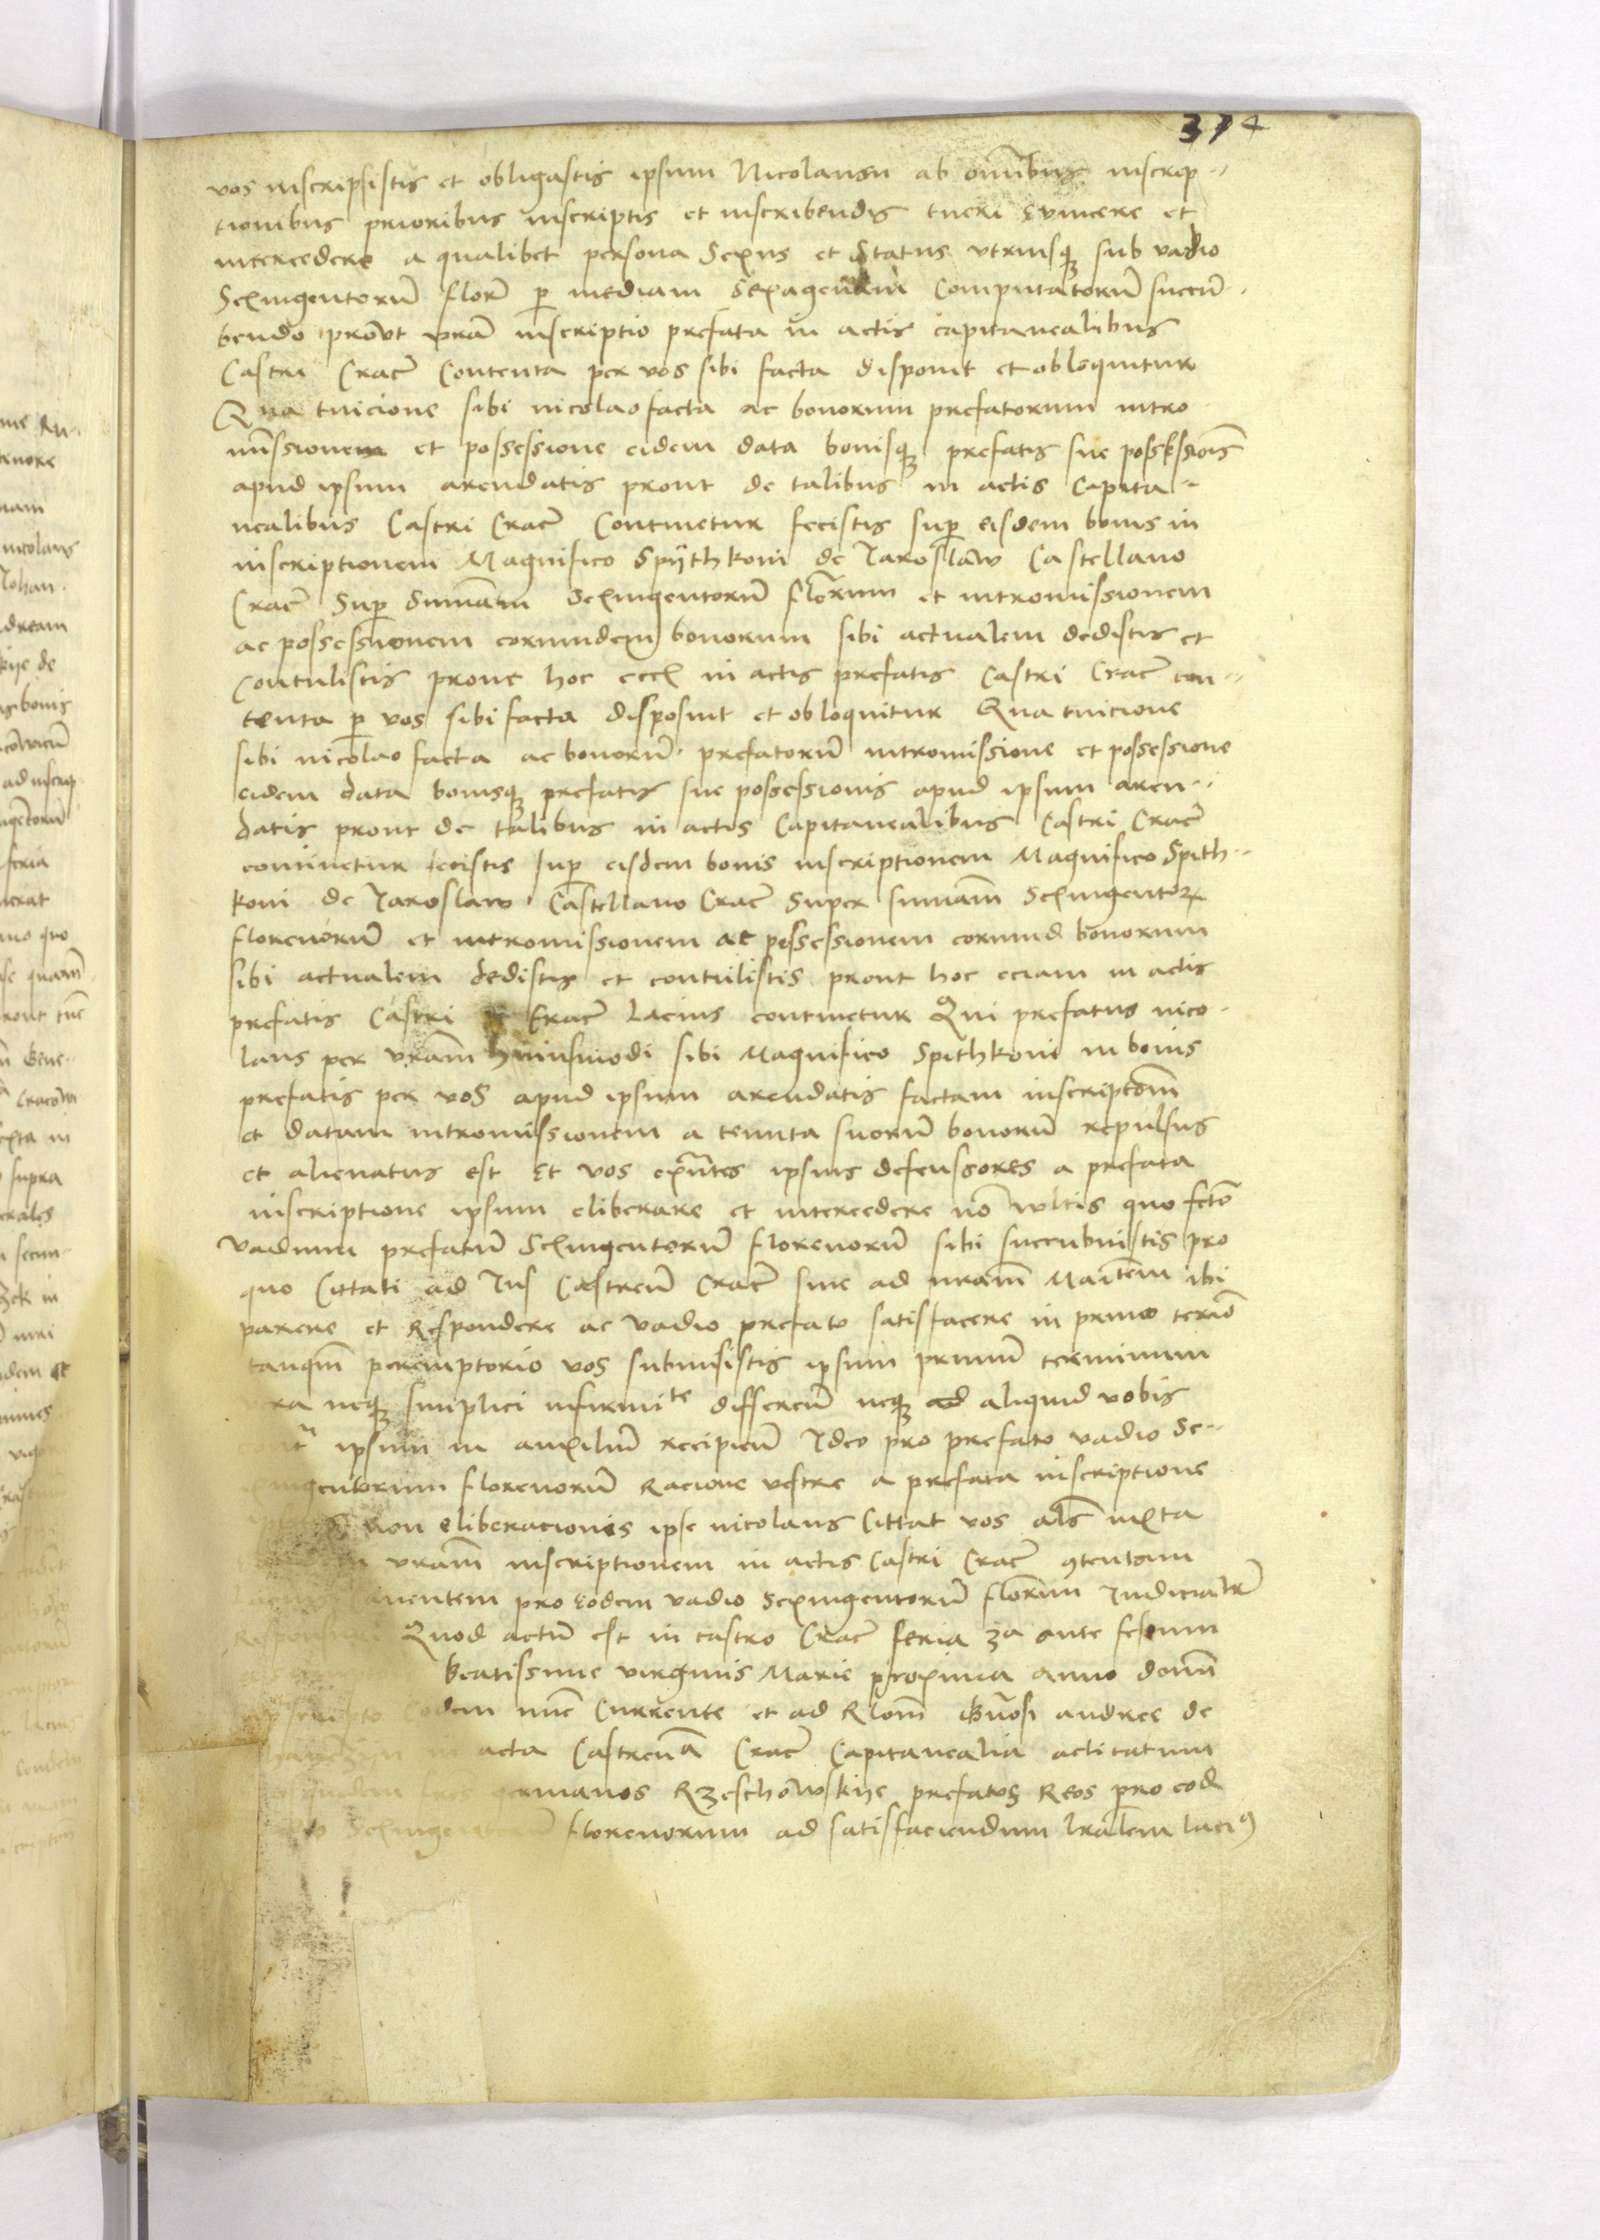 374
vos inscripsistis et obligastis ipsum Nicolaum ab omībus inscrip-
tionibus prioribus inscriptis et inscribendis tueri evincere et
intercedere a qualibet persona Sexus et Status utriusq3 sub vadio
Sexingentorū florē p mediam Sexagenam Computatorū succū-
bendo prout vrā inscriptio prefata in actis capitanealibus
Castri Cracē Contenta per vos sibi facta disponit et obloquitur
Qua tuicione sibi nicolao facta ac bonorum prefatorum intro
missionem et possessione eidem data bonisq3 prefatis sue possessiōis
apud ipsum arendatis prout de talibus in actis Capita-
nealibus Castri Cracē Continetur fecistis sup eisdem bonis in
inscriptionem Magnifico Spijthkoni de Jaroslaw Castellano
Cracē Sup Sumām Sexingentorū florenorum et intromissionem
ac possessionem eorumdem bonorum sibi actualem dedistis et
Contulistis prout hoc in actis prefatis Castri Cracē con-
tenta p vos sibi facta disposuit et obloquitur Qua tuicione
sibi nicolao facta ac bonorū prefatorū intromissione et possessione
eidem data bonisq3 prefatis sue possessionis apud ipsum aren-
datis prout de talibus in actis Capitanealibus Castri Cracē
continetur fecistis sup eisdem bonis inscriptionem Magnifico Spith-
koni de Jaroslaw Castellano Cracē Super sumām Sexingentor
florenorū et intromissionem ac possessionem eorumd bonorum
sibi actualem dedistis et contulistis prout hoc eciam in actis
prefatis Castri Cracē Lacius continetur Qui prefatus nico-
laus per vrām huiusmodi sibi Magnifico Spithkoni in bonis
prefatis per vos apud ipsum arendatis factam inscriptōm
et datam intromissionem a tenuta suorū bonorū repulsus
et alienatus est Et vos exnītes ipsius defenssores a prefata
inscriptione ipsum eliberare et intercedere nō wltis quo fctō
vadium prefatū Sexingentorū florenorū sibi succubuistis pro
quo Cittati ad Jus Castrēn Cracē sive ad nrām Maītem ibi
parere et Respondere ac vadio prefato satisfacere in primo terīō
tanqm peremptorio vos submisistis ipsum primū terminum
ra neq3 simplici infirmite differēn neq3 ad aliquid vobis
ipsum in auxiliū recipiēn Ideo pro prefato vadio Se-
xingentorum florenorū Racione vestre a prefata inscriptione
non eliberacionis ipse nicolaus Cittat vos als iuxta
vrām inscriptionem in actis Castri Cracē 9tentam
pro eodem vadio Sexingentorū florenum Judicialr
Quod actū est in castro Cracē feria 3a ante festum
beatissime virginis Marie proxima anno domī
Eodem nūc Currente et ad Rlōm Gnōsi andree de
in acta Castrenā Cracē Capitanealia actitatum
germanos Rzeschowskije prefatos Reos pro eod
Sexingentorū florenorum ad satisfaciendum lrālem laci9